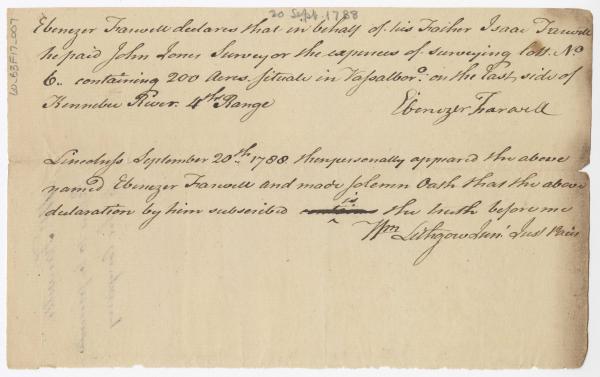 20 Sept. 1788
Ebenezer Farwell declares that in behalf of his Father Isaac Farwell
he paid John Jones Surveyor the expences of surveying lott No
6.. containing 200 Acres. situate in Vassalboro. on the East side of
Kennebec River. 4th Range
Ebenezer Farwell
Lincoln ss September 20th.. 1788 then personally appeared the above
named Ebenezer Farwell and made solemn Oath that the above
declaration by him subscribed is the truth before me
Wm Lithgow Junr. Just Pacis
60_63F17_007